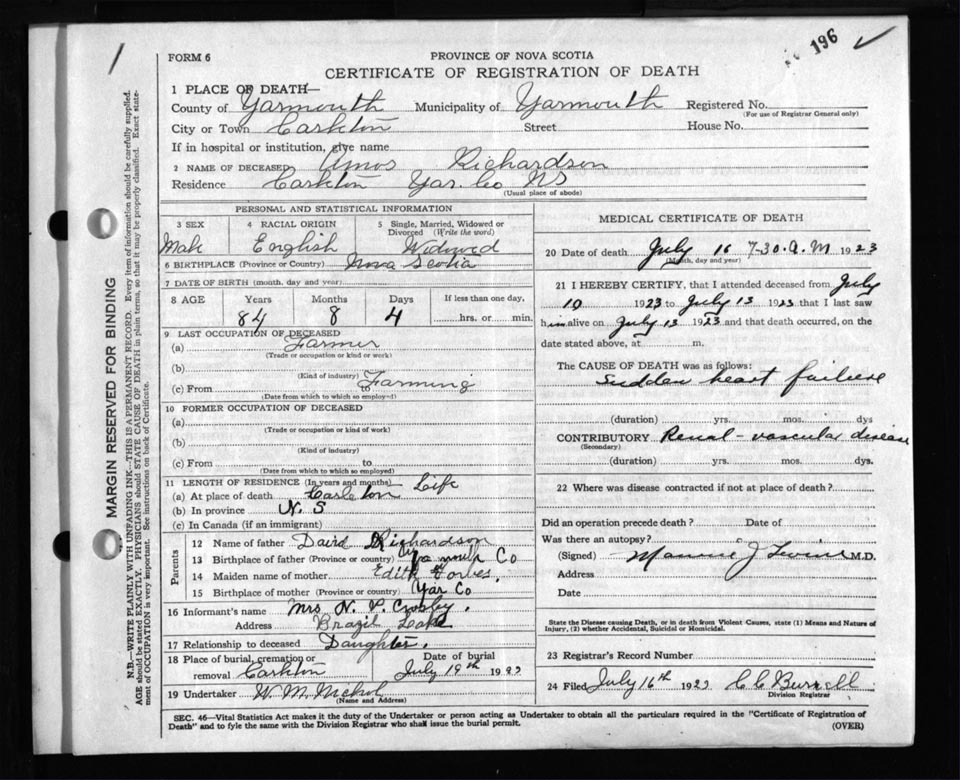 196
FORM 6
PROVINCE OF NOVA SCOTIA
CERTIFICATE OF REGISTRATION OF DEATH
1 PLACE OF DEATH—
County of Yarmouth Municipality of Yarmouth Registered No.
(For use of Registrar General only)
City or Town Carleton Street House No.
If in hospital or institution, give name
2 NAME OF DECEASED Amos Richardson
Residence Carleton Yar. Co NS
(Usual place of abode)
PERSONAL AND STATISTICAL INFORMATION
3 SEX 4 RACIAL ORIGIN 5 Single, Married, Widowed or Divorced (Write the word)
Male English Widowed
6 BIRTHPLACE (Province or Country) Nova Scotia
7 DATE OF BIRTH (month, day and year)
8 AGE Years Months Days If less than one day,
84 8 4 hrs. or min.
9 LAST OCCUPATION OF DECEASED
(a) Farmer
(Trade or occupation or kind or work)
(b)
(Kind of industry)
(c) From to Farming
(Date from which to which so employed)
10 FORMER OCCUPATION OF DECEASED
(a)
(Trade or occupation or kind of work)
(b)
(Kind of industry)
(c) From to
(Date from which to which so employed)
11 LENGTH OF RESIDENCE (In years and months)
(a) At place of death Carleton Life
(b) In province N. S
(c) In Canada (if an immigrant)
Parents
12 Name of father David Richardson
13 Birthplace of father (Province or country) Yarmouth Co
14 Maiden name of mother Edith
15 Birthplace of mother (Province or country) Yar Co
16 Informant's name Mrs N. Crosby.
Address Brazil Lake
17 Relationship to deceased Daughter.
18 Place of burial, cremation or removal Carleton Date of burial July 19th 1923
19 Undertaker W. M.
(Name and Address)
MEDICAL CERTIFICATE OF DEATH
20 Date of death July 16 7-30. a. M 1923
(Month, day and year)
21 I HEREBY CERTIFY, that I attended deceased from July
10 1923 to July 13 1923 that I last saw
him alive on July 13 1923 and that death occurred, on the
date stated above, at m.
The CAUSE OF DEATH was as follows:
Sudden heart failure
(duration) yrs. mos. dys
CONTRIBUTORY Renal-vascular disease
(Secondary)
(duration) yrs. mos. dys.
22 Where was disease contracted if not at place of death?
Did an operation precede death? Date of
Was there an autopsy?
(Signed) J M.D.
Address
Date
State the Disease causing Death, or in death from Violent Causes, state (1) Means and Nature of
Injury, (2) whether Accidental, Suicidal or Homicidal.
23 Registrar's Record Number
24 Filed July 16th 1923 C C Burrell
Division Registrar
SEC. 46—Vital Statistics Act makes it the duty of the Undertaker or person acting as Undertaker to obtain all the particulars required in the "Certificate of Registration of
Death" and to fyle the same with the Division Registrar who shall issue the burial permit. (OVER)
MARGIN RESERVED FOR BINDING
N.B.—WRITE PLAINLY WITH UNFADING INK—THIS IS A PERMANENT RECORD. Every item of information should be carefully supplied.
AGE should be stated EXACTLY. PHYSICIANS should STATE CAUSE OF DEATH in plain terms, so that it may be properly classified. Exact state-
ment of OCCUPATION is very important. See instructions on back of Certificate.